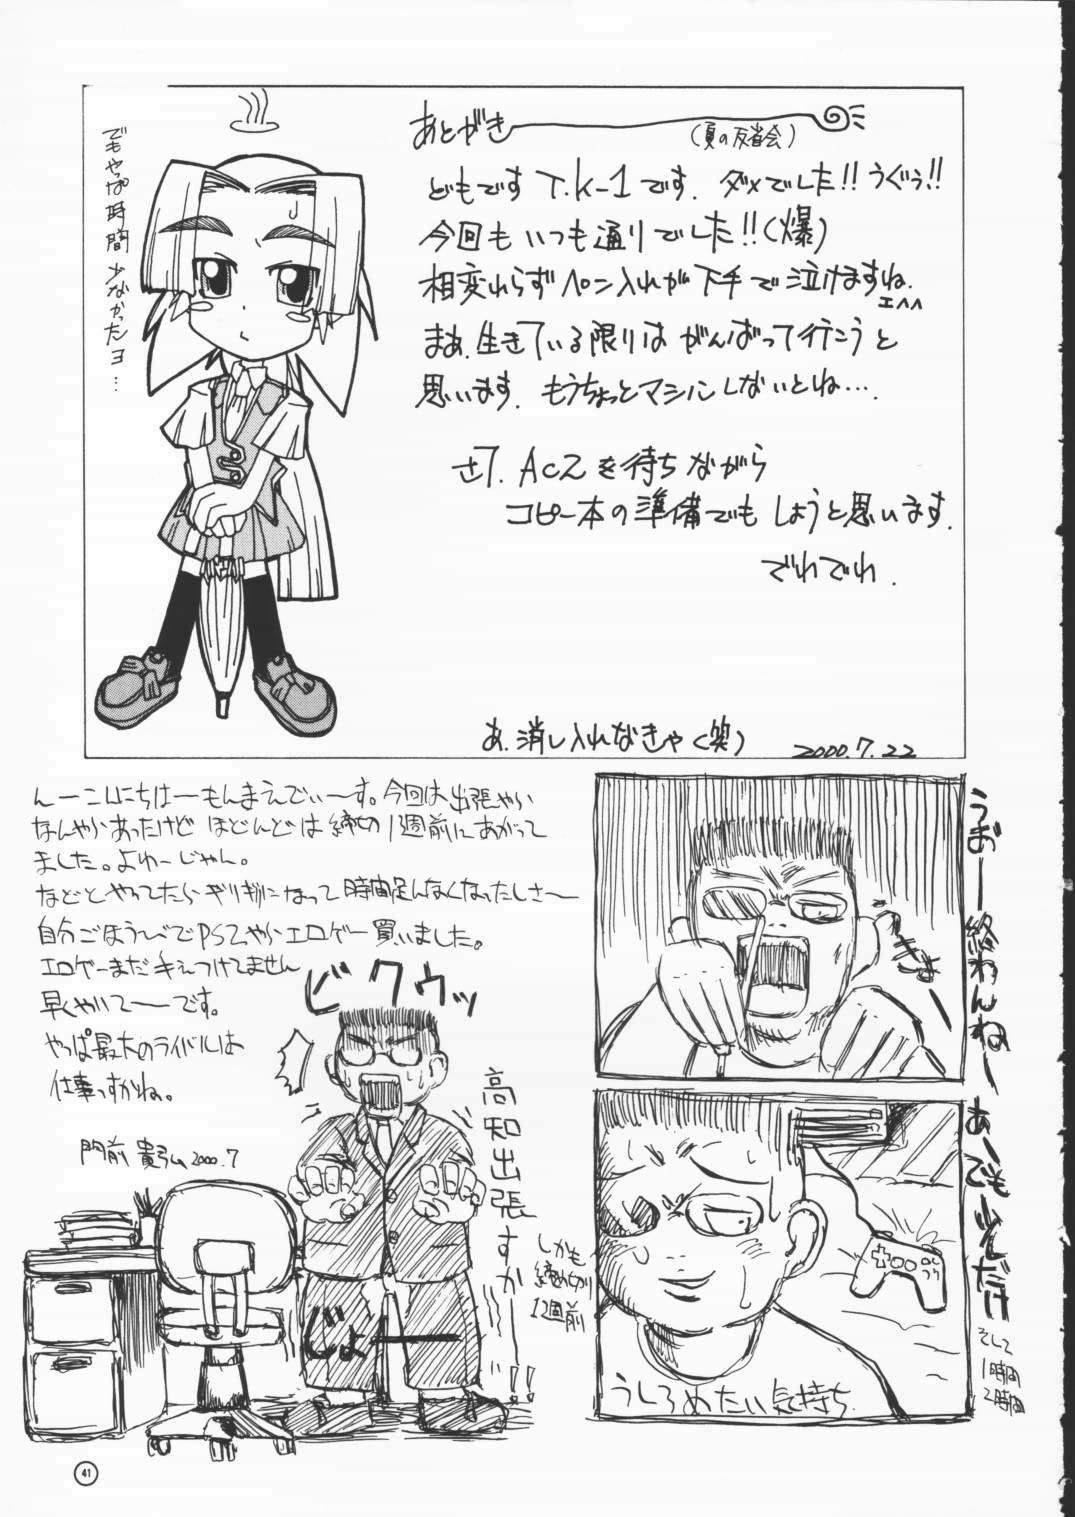 あとがき
(夏の反省会)
どもです T.K-1です. ダメでした!! うぐぅ!!
今回も いつも通りでした!!(爆)
相変わらずペン入れが下手で泣けますね.
エヘヘ
まぁ.生きている限りは がんばって行こうと
思います. もうちょっとマシに しないとね….
さて. AC2を待ちながら
コピー本の準備でも しようと思います.
でわでわ.
あ.消し入れなきゃ(笑)
2000.7.22
でもやっぱ時間少なかったヨ…
んーこんにちはーもんまえでぃーす。今回は出張やら
なんやらあったけど ほとんどは締切1週前にあがって
ました。よゆーじゃん。
などとやってたらギリギリになって時間足んなくなったしさ〜
自分ごほうびでPS2やらエロゲー買いました。
エロゲーまだ手えつけてません
早くやいてーーです。
やっぱ最大のライバルは
仕事っすかね。
門前 貴弘 2000.7
ビクウッ
高知出張すかーーー!!
しかも
締め切り
1週前
じょーー
うおー終わんねー
あーでもーんだけ
そして
1時間
2時間
うしろめたい気持ち
41